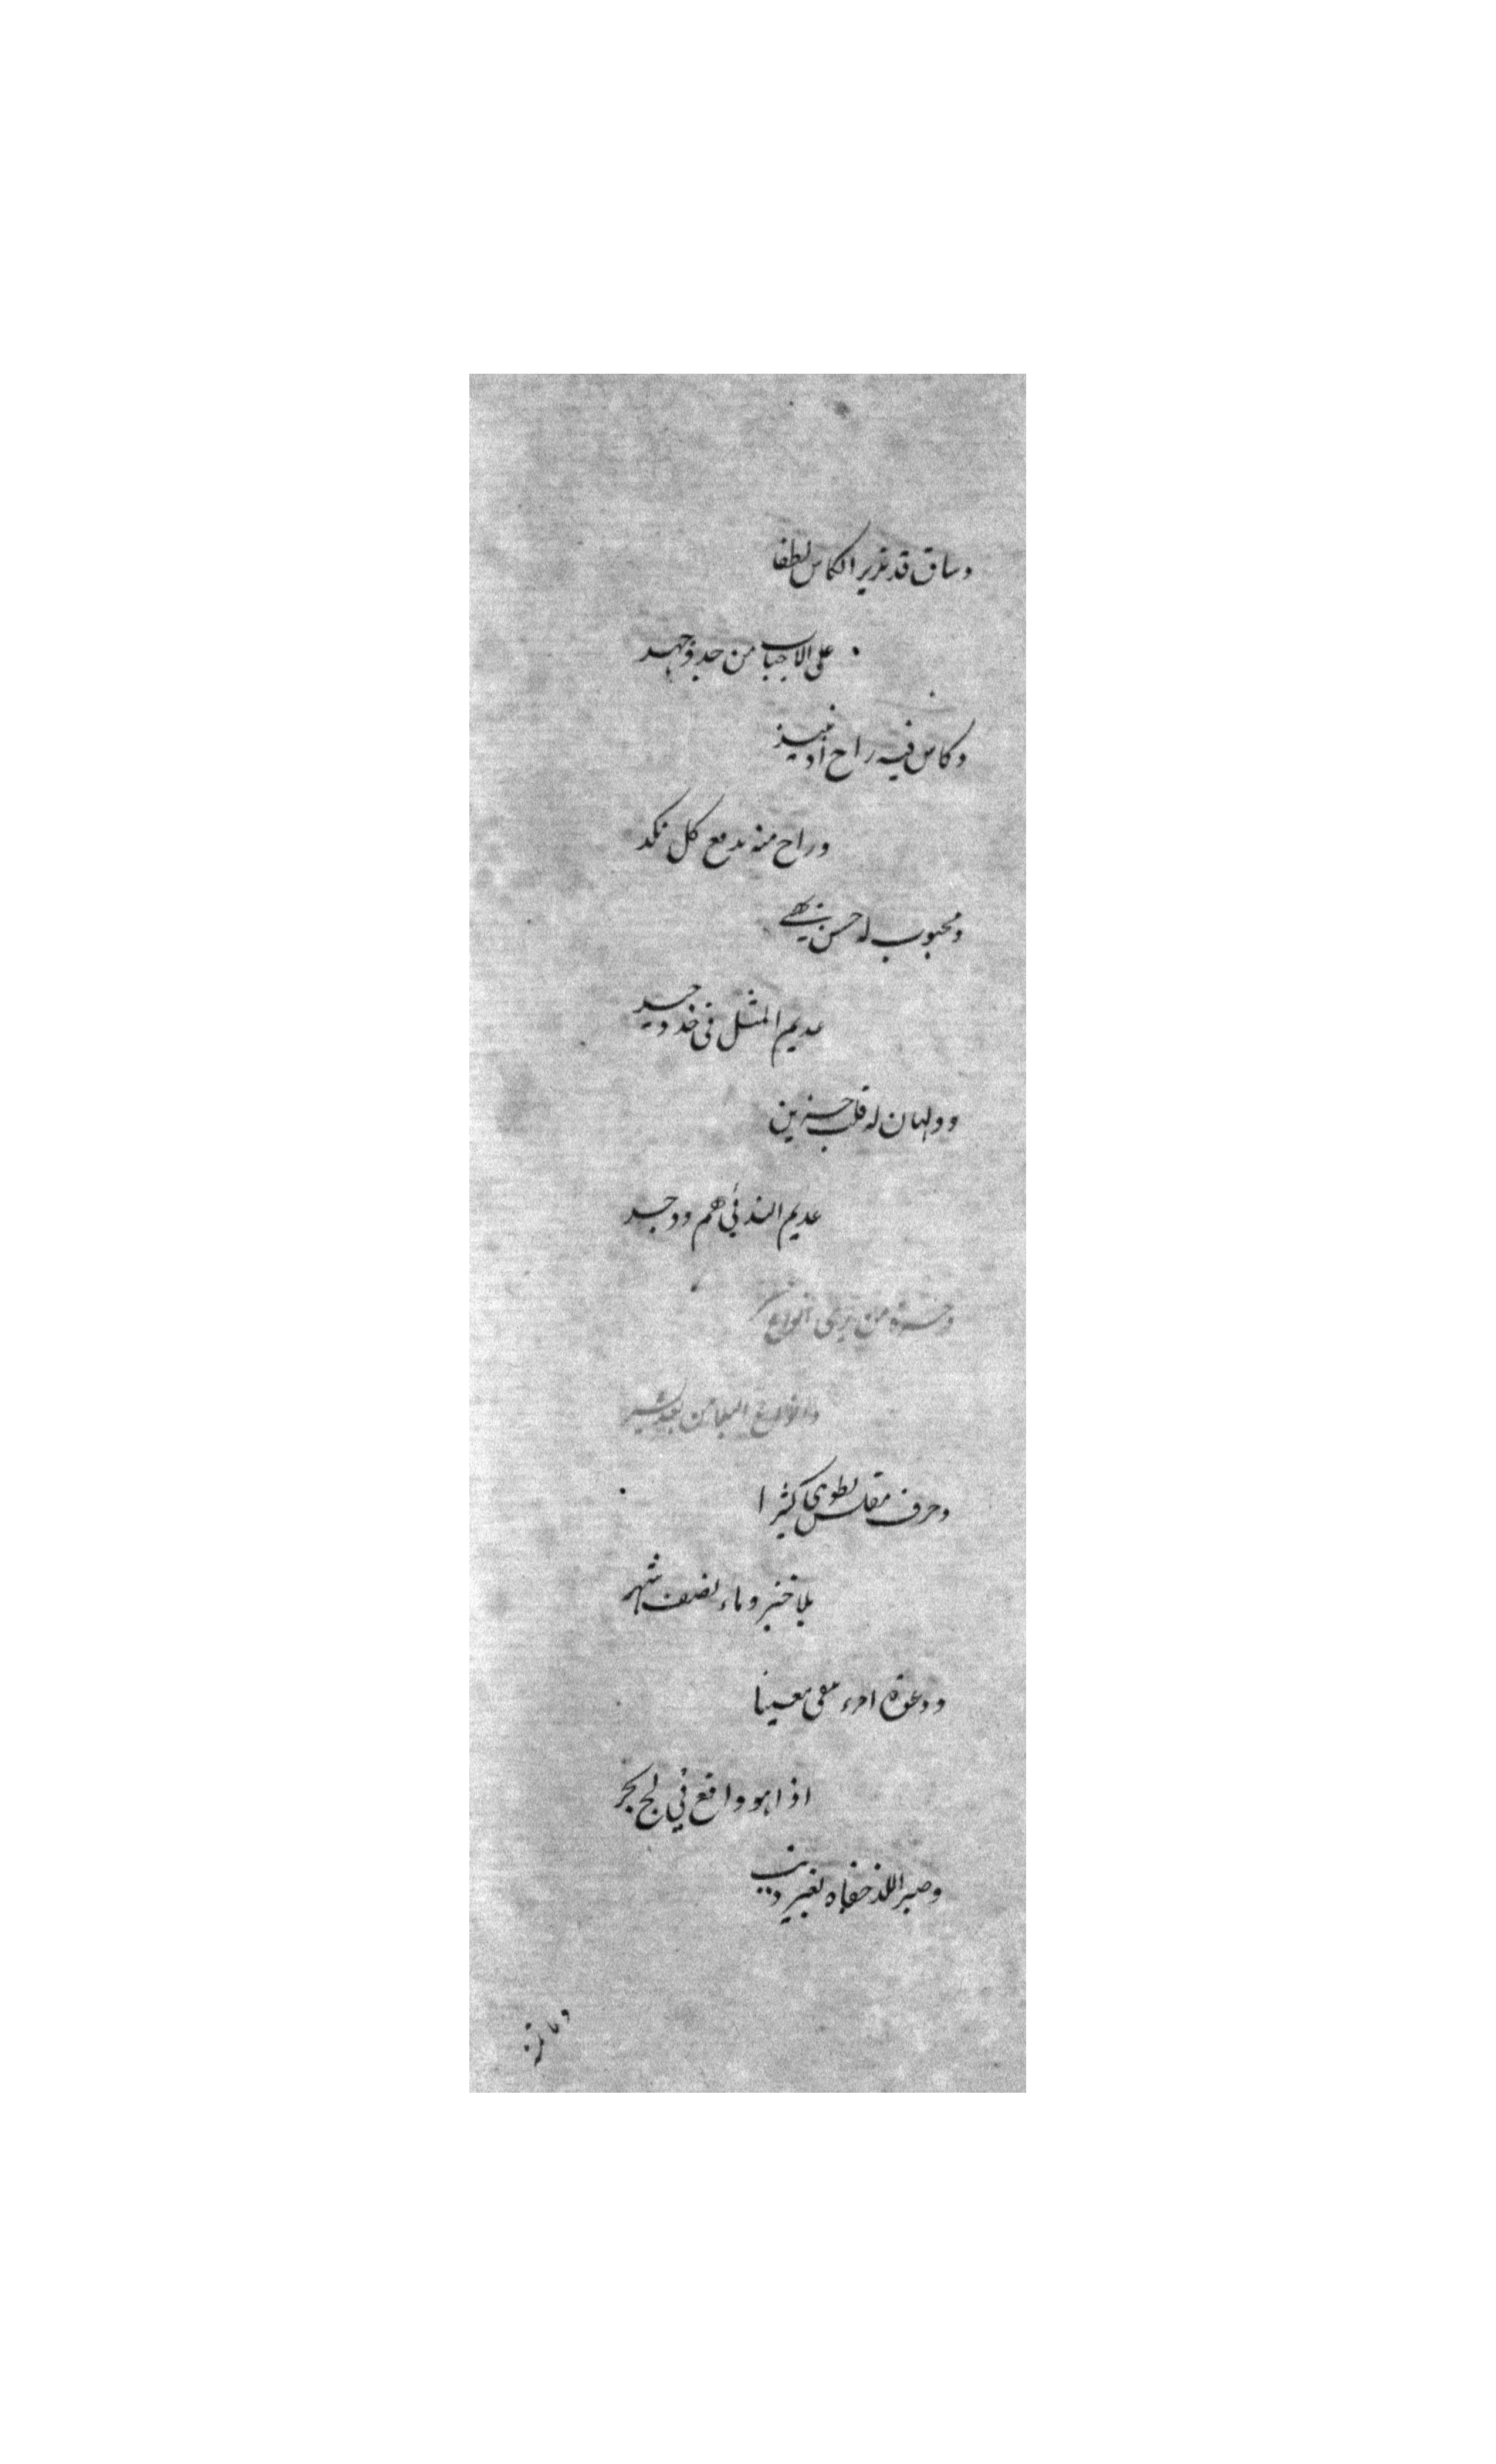 وساق قد يدير الكاس لطفا
على الاحباب من جد وجهد
وكاس فيه راح او نبيذ
وراح منه يدمع كل نكد
ومحبوب له حسن بهي
عديم المثل في خد وجيد
وولهان له قلب حزين
عديم الند في هم ووجد
من يرى انواع
وانواع من بعد
وحرف مفلس يطوى كثيرا
بلا خبز وماء نصف شهر
ودعوة امرء معينا
اذا هو واقع في لج بحر
وصبر بغير ذنب